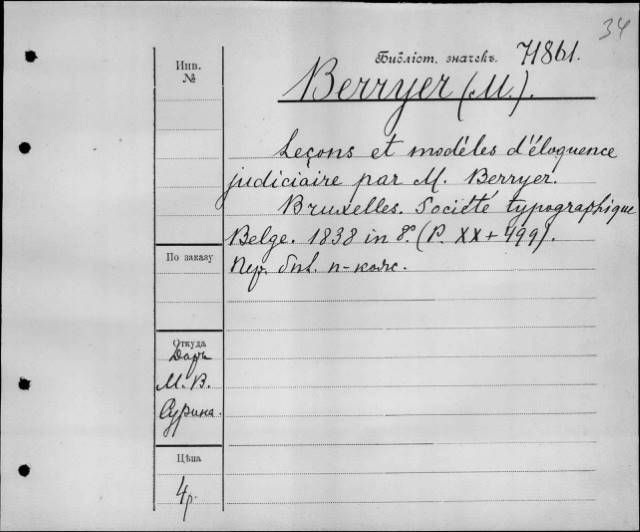 34
Инв.
№
Библіот. значекъ. 71861.
Berryer (M.).
Leçons et modèles d'éloquence
judiciaire par M. Berryer.
Bruxelles. Société typographique
Belge. 1838 in 8º. (P. XX + 499).
По заказу
Пер. бил. п-кояс.
Откуда
Даръ
М. В.
Сурина.
Цѣна
4 р.